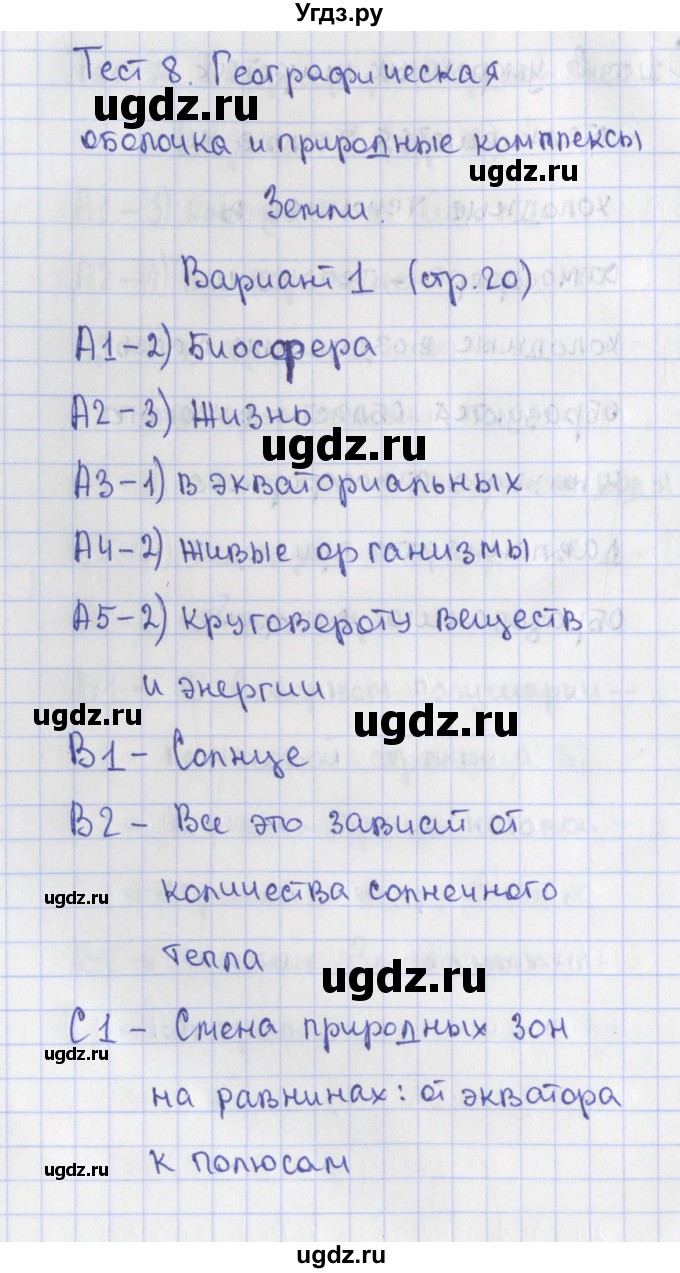 Угдз.ру
Тест 8. Географическая
ugdz.ru
оболочка и природные комплексы
ugdz.ru
Земли.
Вариант 1 (стр.20)
А1-2) Биосфера
А2-3) Жизнь
ugdz.ru
А3-1) в экваториальных
А4-2) живые организмы
А5-2) круговороту веществ
и энергии
ugdz.ru
ugdz.ru
В1 - Солнце
В2 - Все это зависит от
количества солнечного
ugdz.ru
тепла
ugdz.ru
С1 - Смена природных зон
ugdz.ru
на равнинах: от экватора
к полюсам
ugdz.ru
ugdz.ru